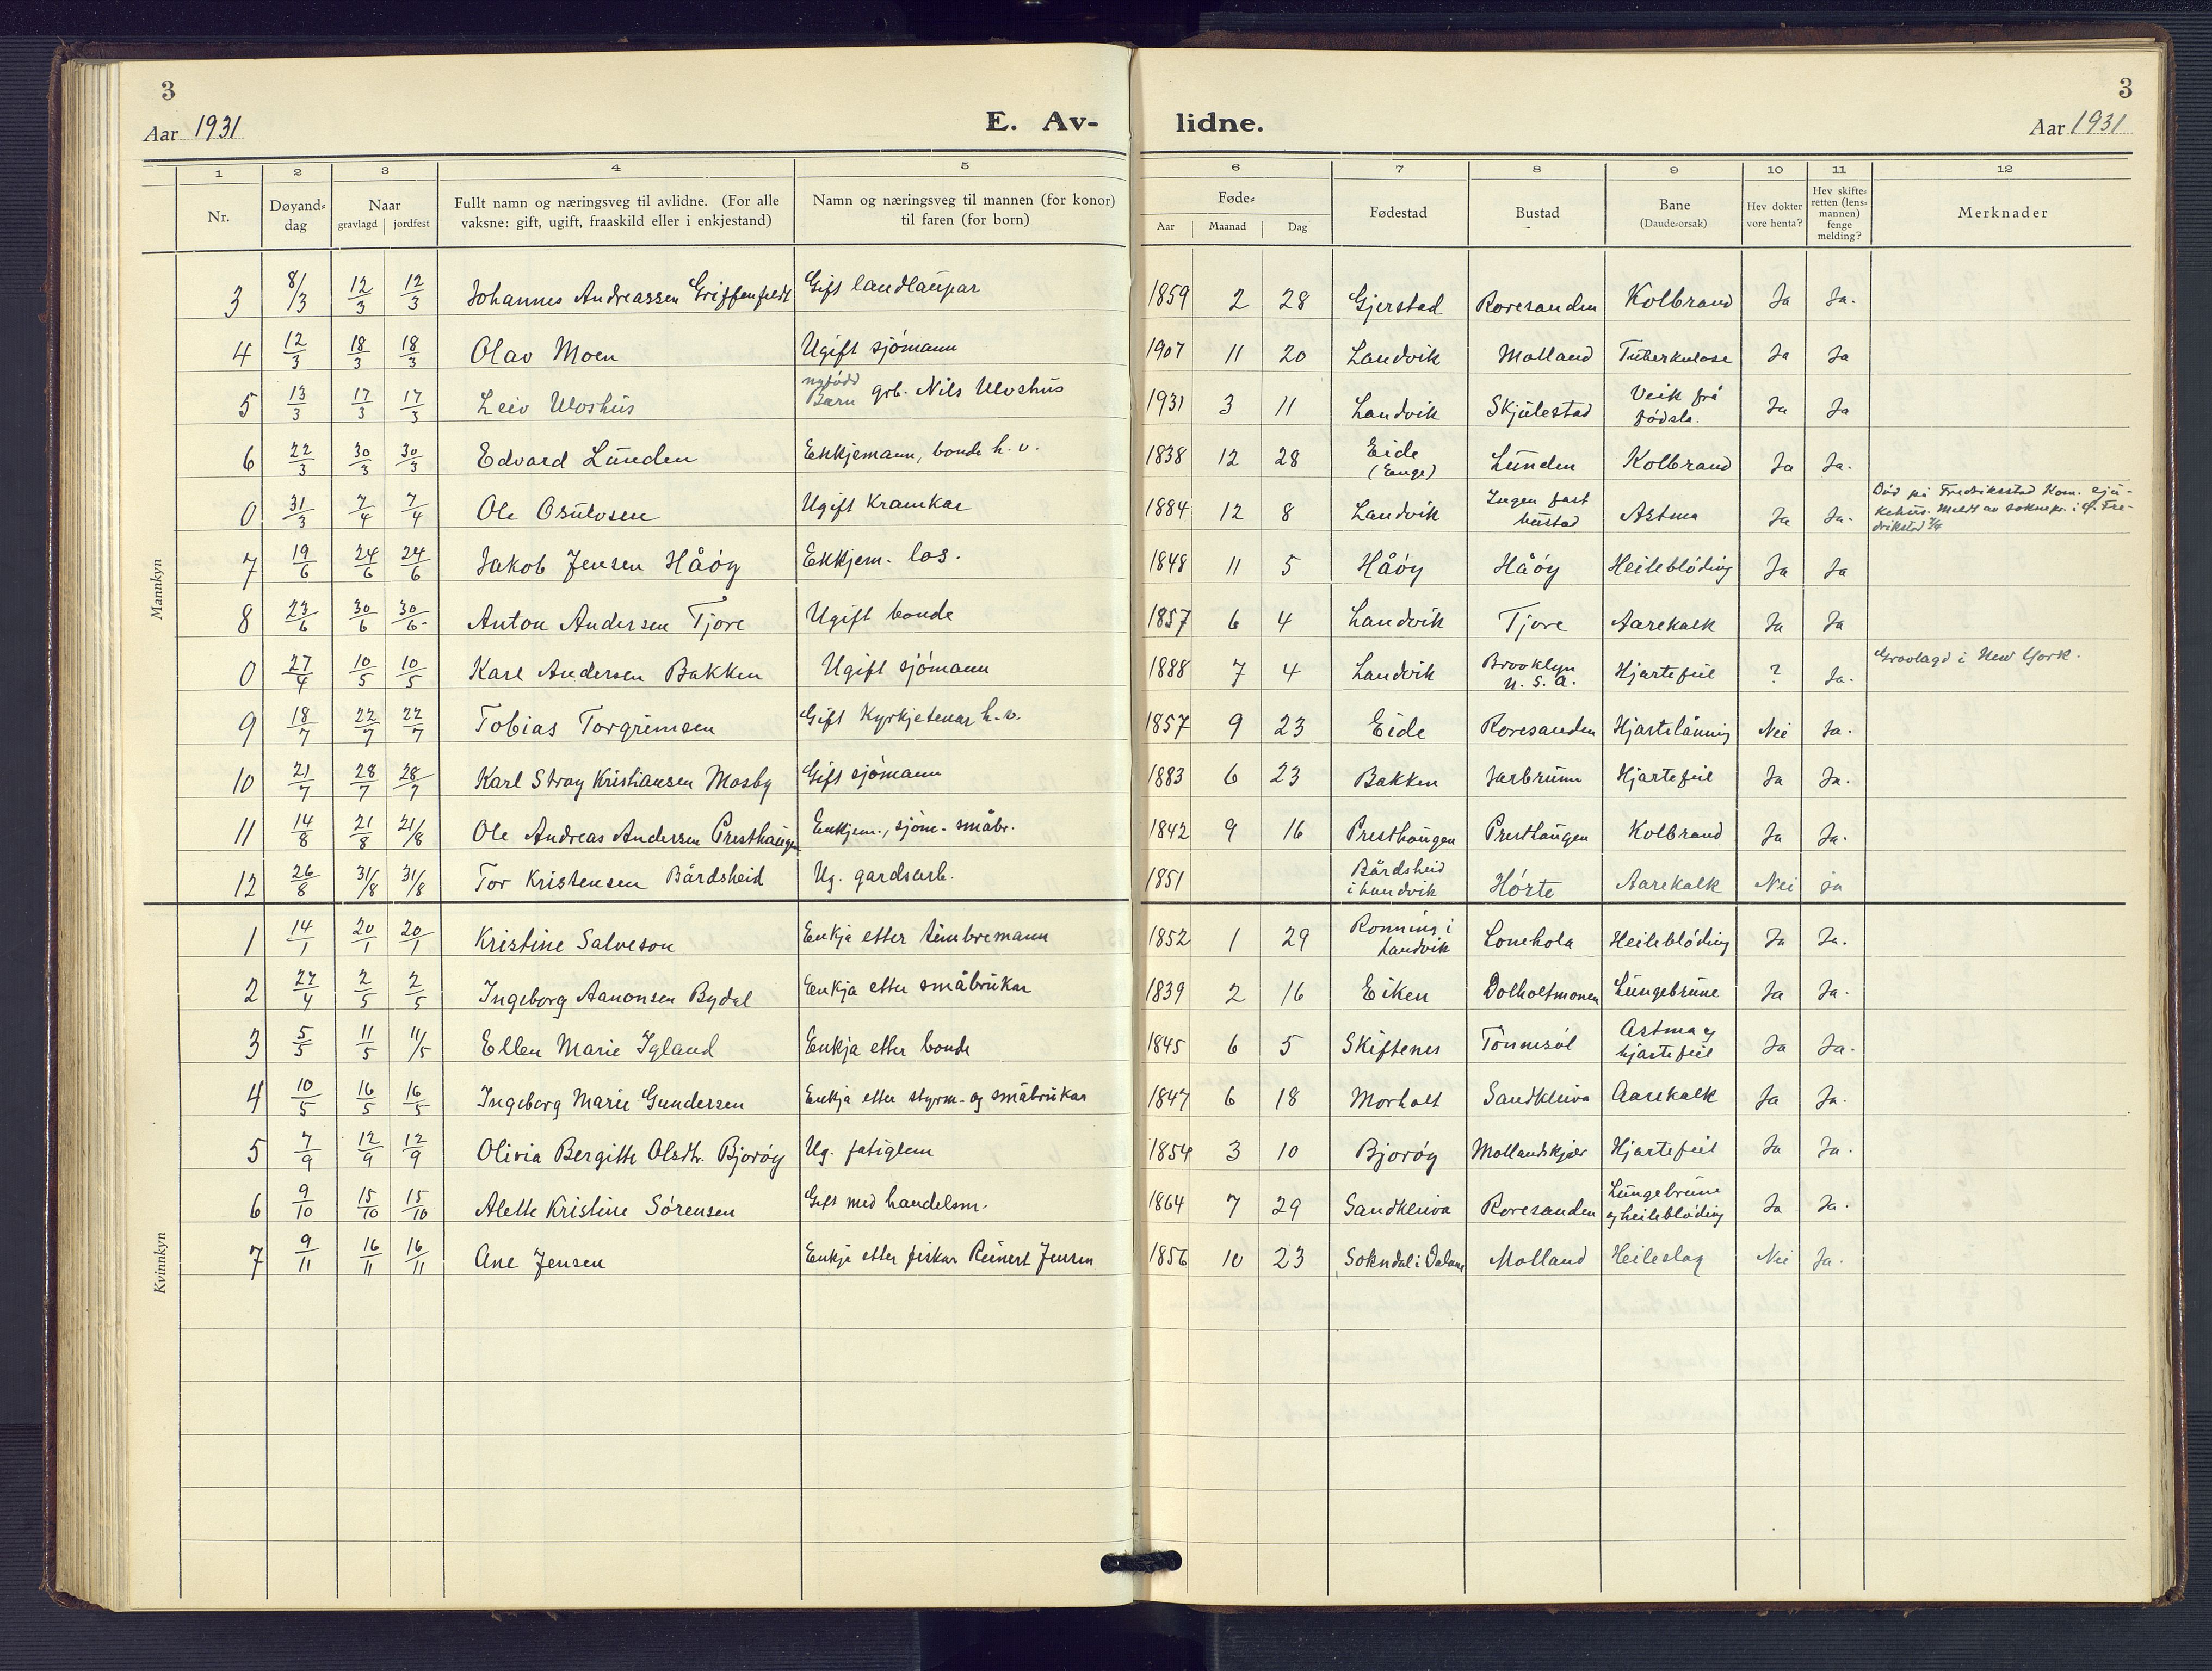 3
3
Aar 1931
E. Av-
lidne.
Aar 1931
1 2 3 4 5 6 7 8 9 10 11 12
Nr.
Døyand-
dag
Naar
gravlagd jordfest
Fullt namn og næringsveg til avlidne. (For alle
vaksne: gift, ugift, fraaskild eller i enkjestand)
Namn og næringsveg til mannen (for konor)
til faren (for born)
Føde-
Aar Maanad Dag
Fødestad
Bustad
Bane
(Daude-orsak)
Hev dokter
vore henta?
Hev skifte-
retten (lens-
mannen)
fenge
melding?
Merknader
Mannkyn
3 8/3 12/3 12/3 Johannes Andreassen Griffenfeldt Gift landlaupar 1859 2 28 Gjerstad Roresanden Kolbrand Ja Ja.
4 12/3 18/3 18/3 Olav Moen Ugift sjómann 1907 11 20 Landvik Molland Tuberkulose Ja Ja
5 13/3 17/3 17/3 Leiv Ulvshus nyfödd Barn grb. Nils Ulvshus 1931 3 11 Landvik Skjulestad Veik frå fódsla. Ja Ja
6 22/3 30/3 30/3 Edvard Lunden Enkjemann, bonde h. v. 1838 12 28 Eide (Enge) Lunden Kolbrand Ja Ja.
0 31/3 7/4 7/4 Ole Osulvsen Ugift Kramkar 1884 12 8 Landvik Ingen fast bustad Astma Ja Ja. Död på Fredriksstad Kom. sju-
kehus. Meldt av soknepr. i
7 19/6 24/6 24/6 Jakob Jensen Håóy Enkjem. los. 1848 11 5 Håóy Håóy Heileblóding Ja Ja
8 23/6 30/6 30/6 Anton Andersen Tjore Ugift bonde 1857 6 4 Landvik Tjore Aarekalk Ja Ja
0 27/4 10/5 10/5 Karl Andersen Bakken Ugift sjómann 1888 7 4 Landvik Brooklyn U. S. A. Hjartefeil ? Ja. Gravlagd i New York.
9 18/7 22/7 22/7 Tobias Torgrimsen Gift Kyrkjetenar h. v. 1857 9 23 Eide Roresanden Hjartelåming Nei Ja.
10 21/7 28/7 28/7 Karl Stray Kristiansen Mosby Gift sjómann 1883 6 23 Bakken Jarbrunn Hjartefeil Ja Ja.
11 14/8 21/8 21/8 Ole Andreas Andersen Presthaugen Enkjem., sjóm. småbr. 1842 9 16 Presthaugen Presthaugen Kolbrand Ja Ja.
12 26/8 31/8 31/8 Tor Kristensen Bårdsheid Ug. gardsarb. 1851 Bårdsheid i Landvik Hórte Aarekalk Nei ja
Kvinnkyn
1 14/1 20/1 20/1 Kristine Salveson Enkja etter timbremann 1852 1 29 Ronning i Landvik Lonehola Heileblóding Ja Ja.
2 27/4 2/5 2/5 Ingeborg Aanonsen Bydal Enkja etter småbrukar 1839 2 16 Eiken Dolholtmonen Lungebrune Ja Ja.
3 5/5 11/5 11/5 Ellen Marie Igland Enkja etter bonde 1845 6 5 Skiftenes Tonnesól Astma og hjartefeil Ja Ja.
4 10/5 16/5 16/5 Ingeborg Marie Gundersen Enkja etter styrm- og småbrukar 1847 6 18 Morholt Sandkleiva Aarekalk Ja Ja.
5 7/9 12/9 12/9 Olivia Bergitte Olsdtr. Bjoróy Ug. fatiglem 1854 3 10 Bjoróy Mollandskjær Hjartefeil Ja Ja.
6 9/10 15/10 15/10 Alette Kristine Sórensen Gift med handelsm. 1864 7 29 Sandkleiva Roresanden Lungebrune og heileblóding Ja Ja.
7 9/11 16/11 16/11 Ane Jensen Enkje etter fiskar Reinert Jensen 1856 10 23 Sokndal i Dalane Molland Heileslag Nei Ja.